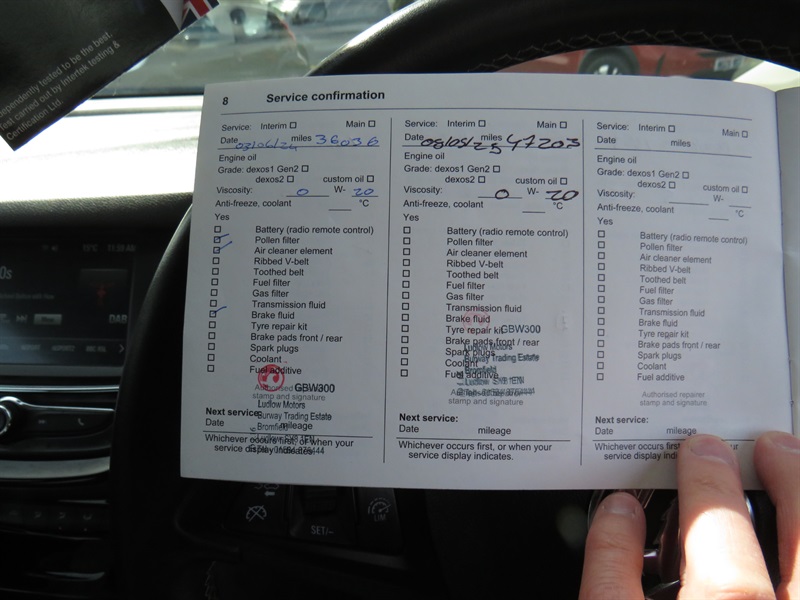 ependently tested to be the best.
first carried out by Intertek testing &
Certification Ltd.
8 Service confirmation
Service: Interim Main
Date 03/06/24 miles 36036
Engine oil
Grade: dexos1 Gen2
dexos2 custom oil
Viscosity: 0 W- 20
Anti-freeze, coolant °C
Yes
Battery (radio remote control)
Pollen filter
Air cleaner element
Ribbed V-belt
Toothed belt
Fuel filter
Gas filter
Transmission fluid
Brake fluid
Tyre repair kit
Brake pads front / rear
Spark plugs
Coolant
Fuel additive
Authorised
stamp and signature.
GBW300
Ludlow Motors
Burway Trading Estate
Bromfield
Ludlow SY8 1EN
Next service:
Date mileage
Whichever occurs first, or when your
service display indicates.
Service: Interim Main
Date 08/05/25 miles 47203
Engine oil
Grade: dexos1 Gen2
dexos2 custom oil
Viscosity: 0 W- 20
Anti-freeze, coolant °C
Yes
Battery (radio remote control)
Pollen filter
Air cleaner element
Ribbed V-belt
Toothed belt
Fuel filter
Gas filter
Transmission fluid
Brake fluid
Tyre repair kit
Brake pads front / rear
Spark plugs
Coolant
Fuel additive
stamp and signature.
GBW300
Ludlow Motors
Burway Trading Estate
Bromfield
Ludlow SY8 1EN
Next service:
Date mileage
Whichever occurs first, or when your
service display indicates.
Service: Interim Main
Date miles
Engine oil
Grade: dexos1 Gen2
dexos2 custom oil
Viscosity: W-
Anti-freeze, coolant °C
Yes
Battery (radio remote control)
Pollen filter
Air cleaner element
Ribbed V-belt
Toothed belt
Fuel filter
Gas filter
Transmission fluid
Brake fluid
Tyre repair kit
Brake pads front / rear
Spark plugs
Coolant
Fuel additive
Authorised repairer
stamp and signature.
Next service:
Date mileage
Whichever occurs first, or when your
service display indicates.
DAB
SET/-